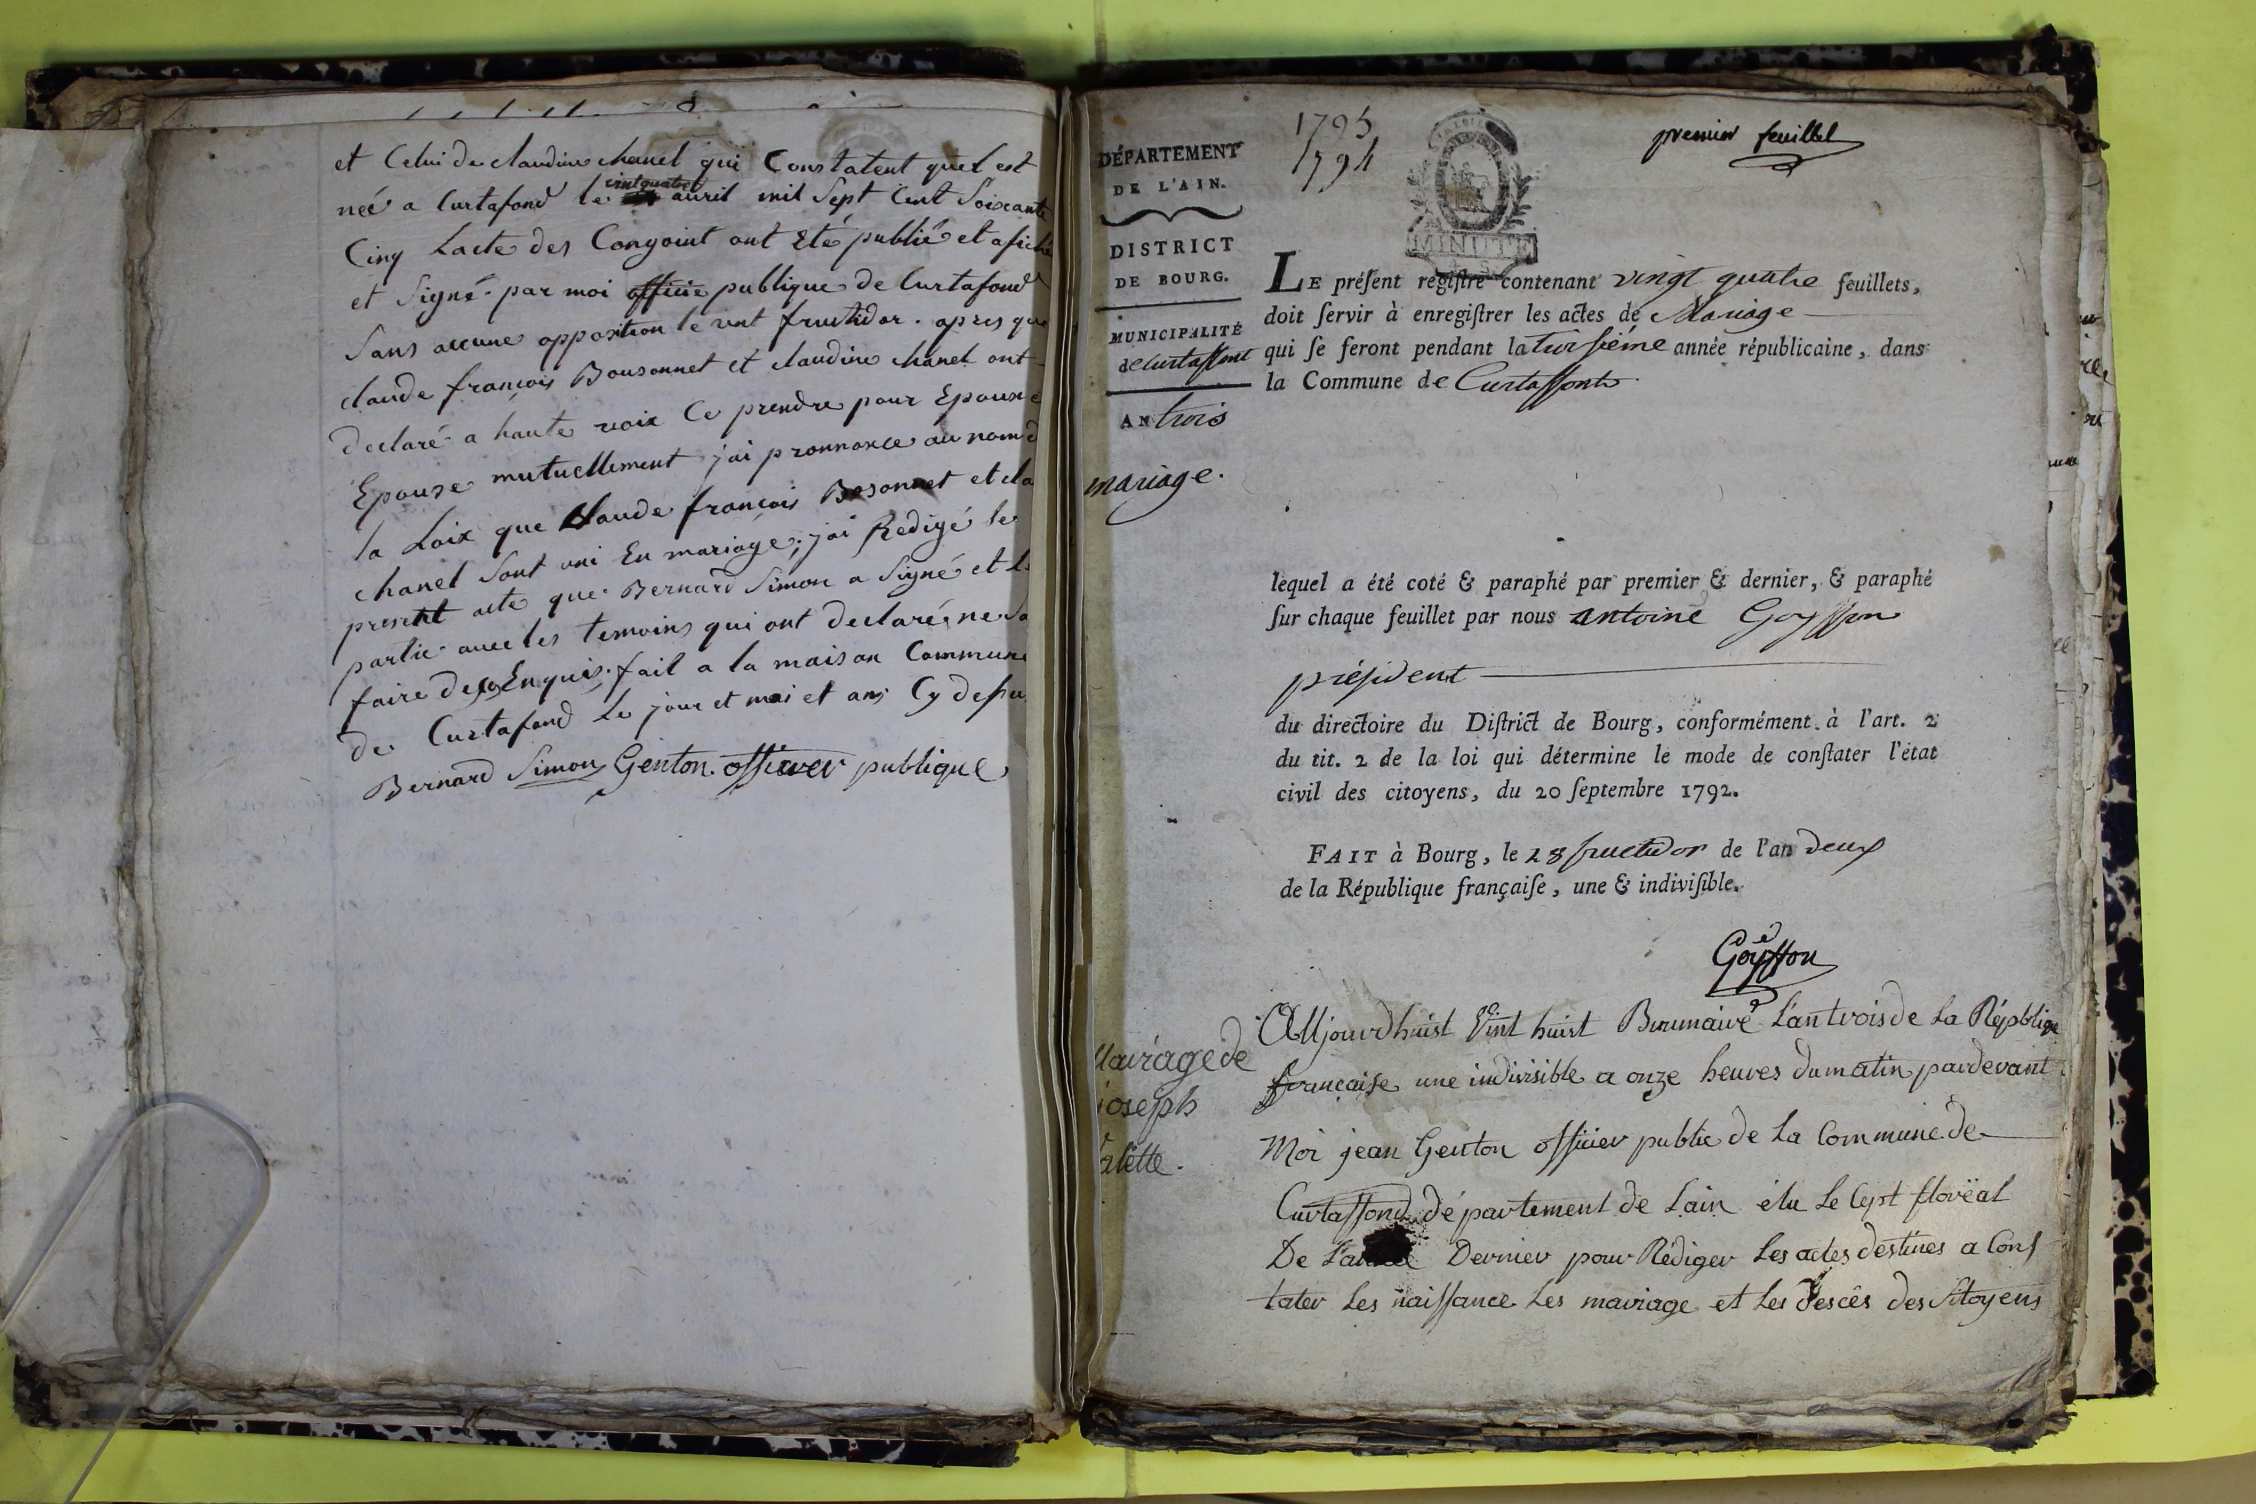 et Celui de claudine chanel qui Constatent quel est
née a Curtafond le vintquatre auril mil Sept Cent Soixante
Cinq Lacte des Conjoint ont Eté publié et afiché
et Signé par moi officie publique de Curtafond
Sans aucune opposition le vint fructidor. apres que
claude françois Bousonnet et claudine chanel ont
declaré a haute voix Ce prendre pour Epoux e
Epouse mutuellement j'ai pronnonce au nom d
la Loix que Claude françois Bosonnet et cla
chanel Sont uni En mariage; jai Redigé le
present acte que Bernard Simon a Signé et L
partie avec les temoins qui ont declaré ne Sa
faire de Enquis fait a la maison Commune
de Curtafond Le jour et moi et an Cy desu
Bernard Simon Genton officier publique
DÉPARTEMENT
DE L'AIN.
DISTRICT
DE BOURG.
MUNICIPALITÉ
de Curtaffont
AN trois
mariage.
1795
1794
premier feuillet
MINUTE
LE préſent regiſtre contenant vingt quatre feuillets,
doit ſervir à enregiſtrer les actes de Mariage
qui ſe feront pendant la troiſiéme année républicaine, dans
la Commune de Curtaffont
lequel a été coté & paraphé par premier & dernier, & paraphé
ſur chaque feuillet par nous antoine Goyffon
préſident
du directoire du Diſtrict de Bourg, conformément à l'art. 2
du tit. 2 de la loi qui détermine le mode de conſtater l'état
civil des citoyens, du 20 ſeptembre 1792.
FAIT à Bourg, le 28 fructidor de l'an deux
de la République françaiſe, une & indiviſible.
Goyffon
Mariage de
joseph
alette.
Aujourdhuist Vint huist Brumaire L'an trois de La Répblique
françaiſe une indivisible a onze heures du matin pardevant
Moi jean Genton officier public de La Commune de
Curtaffond département de Lain élu Le Cept floréal
De L'année Dernier pour Rédiger Les actes destines a Conſ
tater Les naissance Les mariage et Les descês des Sitoyens